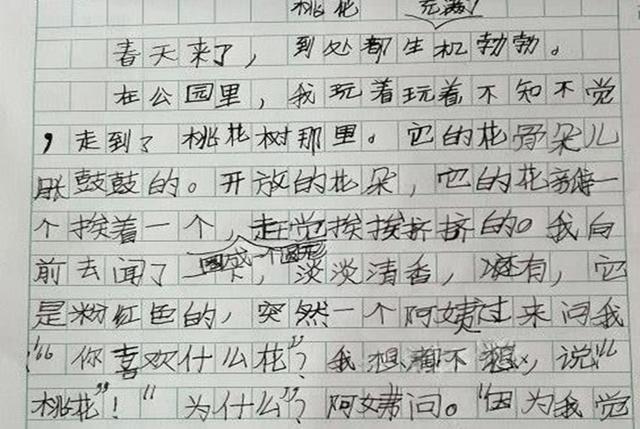 桃花
春天来了，到处都生机勃勃。
在公园里，我玩着玩着不知不觉
，走到了桃花树那里。它的花骨朵儿
胀鼓鼓的。开放的花朵，它的花瓣一
个挨着一个，挨挨挤挤的。我向
围成一个圆形
前去闻了一下，淡淡清香，还有，它
是粉红色的，突然一个阿姨过来问我
“你喜欢什么花”？我想都不想，说“
桃花”！“为什么”？阿姨问。“因为我觉